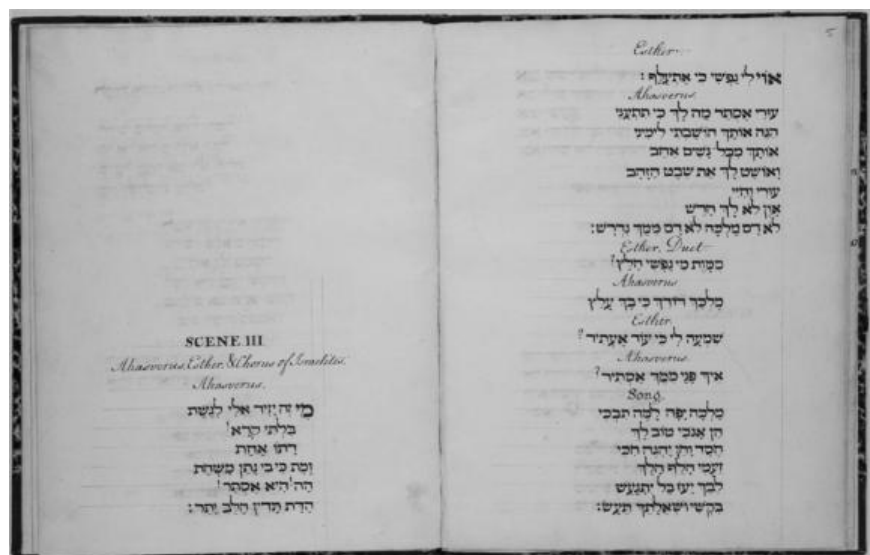 SCENE III.
Ahasverus, Esther, & Chorus of Israelites.
Ahasverus.
מי זה יזיד אלי לגשת
בלתי קרא!
דתו אחת
ומת כי בי נתן משחת
הה! היא אסתר!
הדת תדין הלב יתר:
5
Esther.
אוי לי נפשי כי אתעלף:
Ahasverus.
עורי אסתר מה לך כי תתעני
הנה אותך הושבתי לימיני
אותך מכל נשים אהב
ואושט לך את שבט הזהב
עורי וחיי
און לא לך חרש
לא דם מלכה לא דם ממך נדרש:
Esther. Duet
ממות מי נפשי חלץ?
Ahasverus
מלכך דודך כי בך עלץ
Esther.
שמעה לי כי עוד אעתיר?
Ahasverus.
איך פני ממך אסתיר?
Song.
מלכה יפה למה תבכי
הן אנכי טוב לך
חסד וחן יהגה חכי
זעמי חלף הלך
לבך יעז בל יתגעש
בקשי ושאלתך תעש: